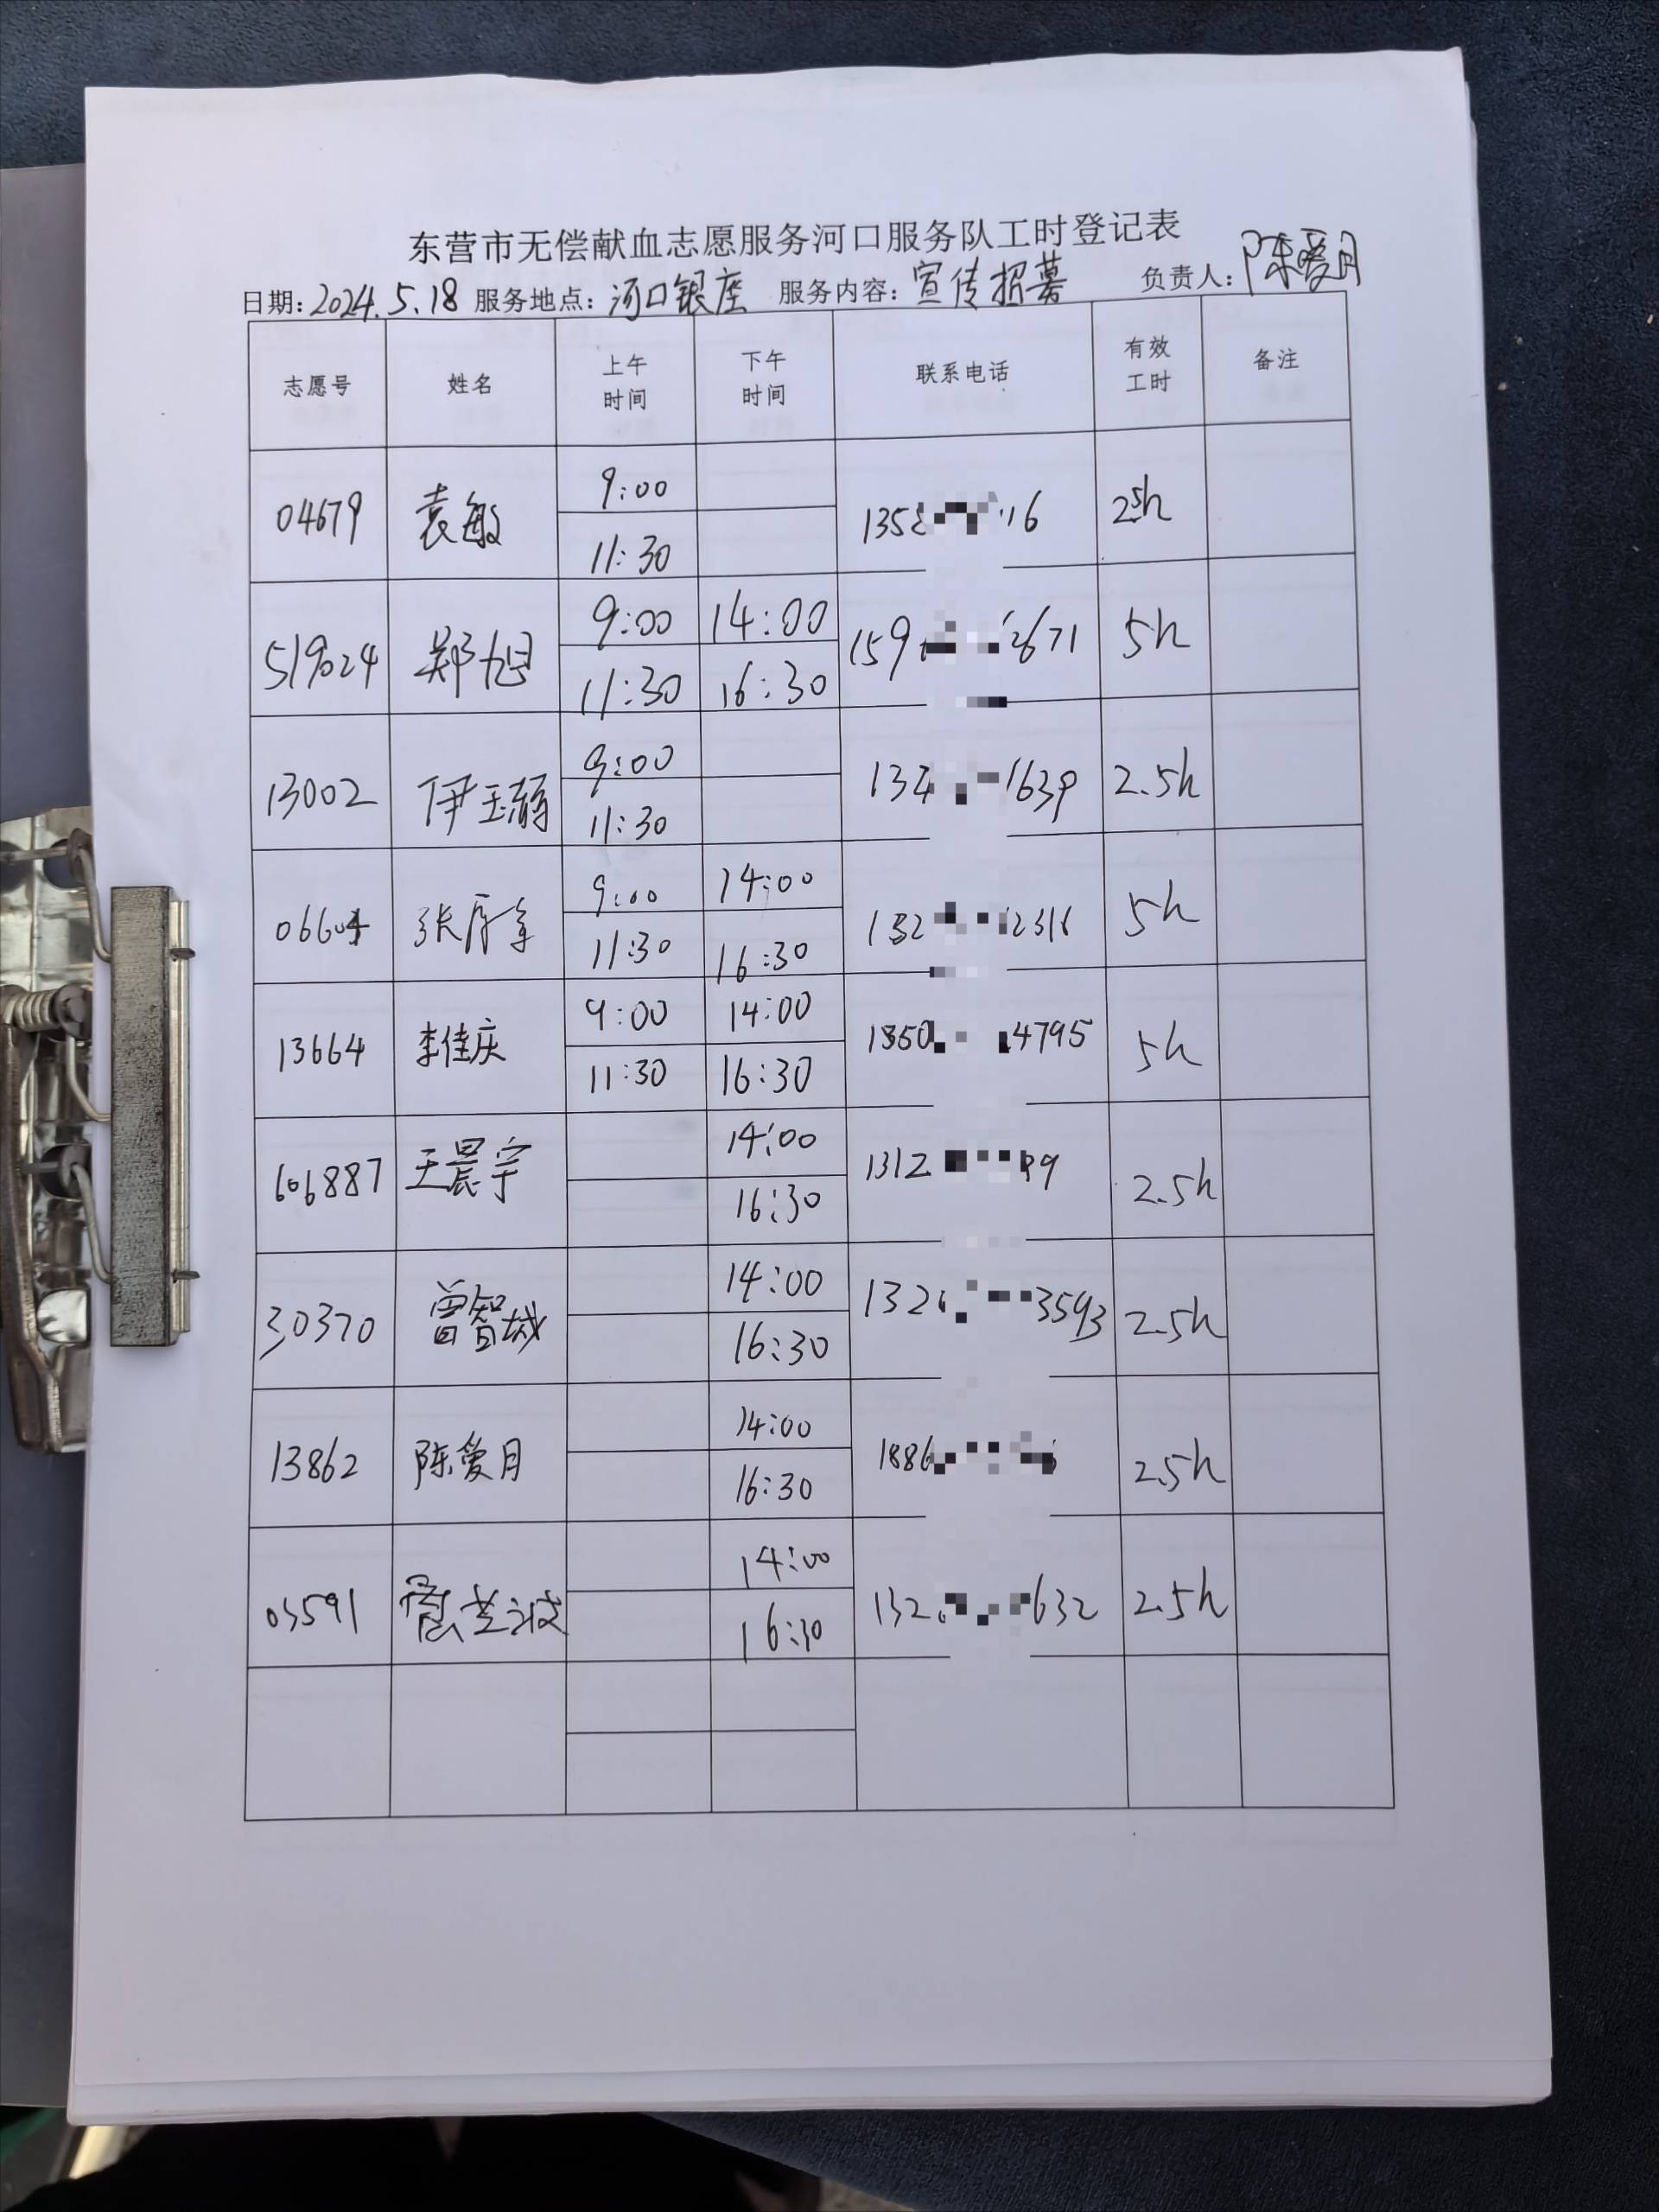 东营市无偿献血志愿服务河口服务队工时登记表
日期:2024.5.18 服务地点:河口银座 服务内容:宣传招募 负责人:陈爱月
志愿号 姓名 上午时间 下午时间 联系电话 有效工时 备注
04679 袁敏 9:00 11:30 135 16 2.5h
519024 郑旭 9:00 11:30 14:00 16:30 159 2671 5h
13002 伊玉 9:00 11:30 134 1639 2.5h
张 9:00 11:30 14:00 16:30 132 2316 5h
13664 李佳庆 9:00 11:30 14:00 16:30 1350 4795 5h
606887 王晨宇 14:00 16:30 1312 99 2.5h
30370 曾智城 14:00 16:30 132 3593 2.5h
13862 陈爱月 14:00 16:30 1886 2.5h
03591 14:00 16:30 132 632 2.5h